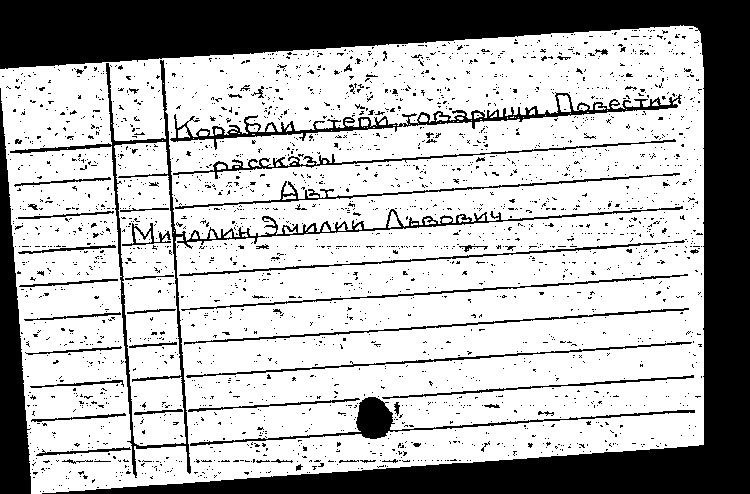 Корабли, степи, товарищи. Повести и
рассказы
Авт.
Миндлин, Эмилий Львович